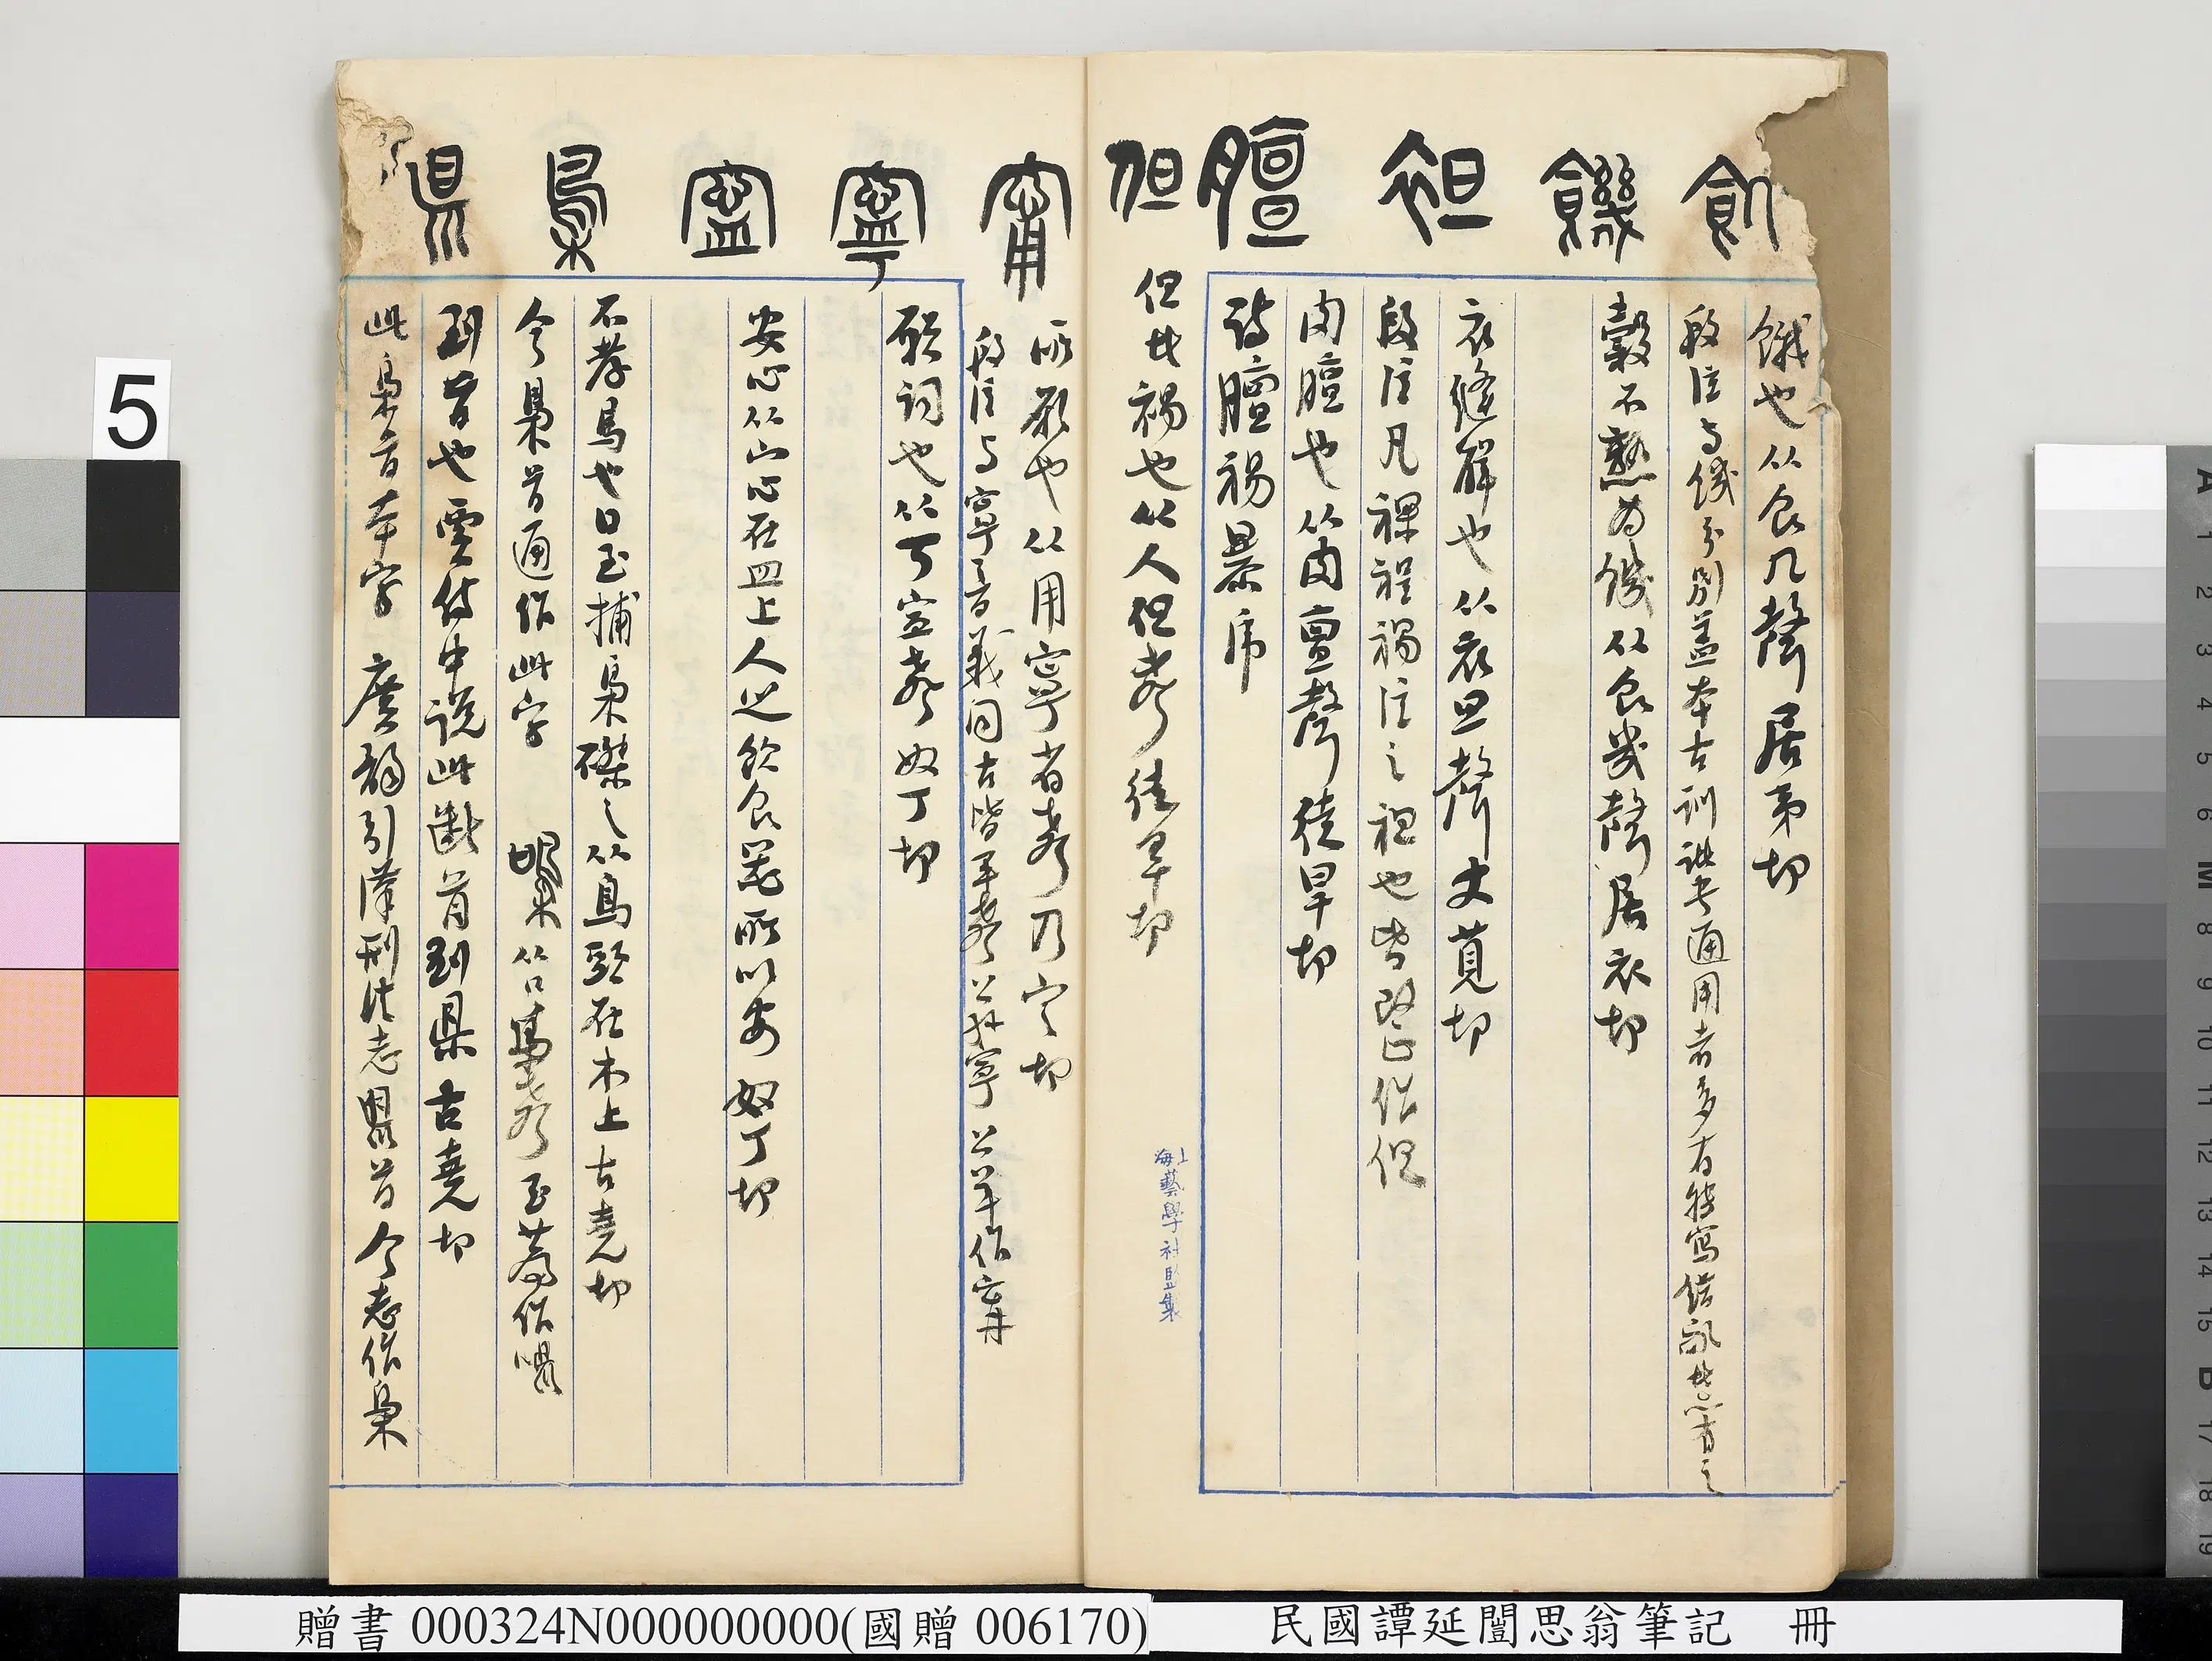 飢
饑
袒
膻
但
餓也从食几聲居夷切
段注与饑分別蓋本古訓諸書通用者多有轉寫錯亂者
穀不熟为饑从食幾聲居衣切
衣縫解也从衣旦聲丈莧切
段注凡裸裎裼注之袒也皆當正作但
肉膻也从肉亶聲徒旱切
詩膻裼暴虎
但 裼也从人旦聲徒旱切
上海藝學社監製
甯
寧
寍
梟
県
所願也从用寧省聲乃定切
段注与寧音義同古皆平聲 公羊作
願詞也从丂寍聲奴丁切
安也从宀心在皿上人之飲食器所以安 奴丁切
不孝鳥也日至捕梟磔之从鳥頭在木上古堯切
今梟首通作此字
到首也賈侍中說此斷首到県古堯切
此梟首本字 廣韻引漢刑法志県首今志作梟
5
贈書 000324N000000000(國贈 006170) 民國譚延闓思翁筆記 冊